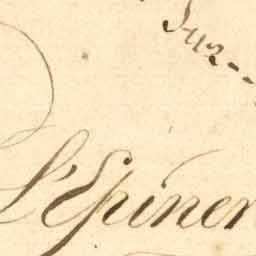 Sur
L'Epiner